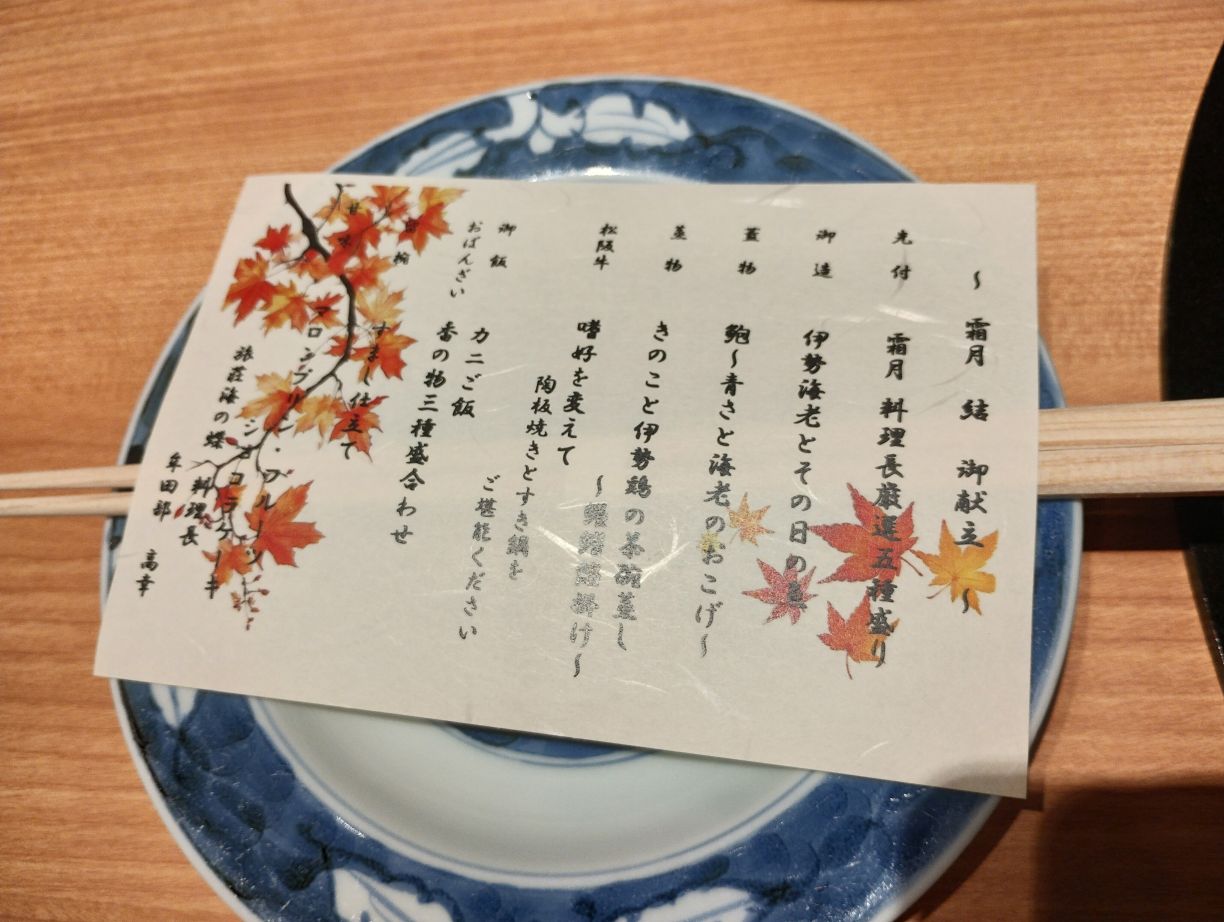 〜 霜月 結 御献立 〜
先付 霜月 料理長厳選五種盛り
御造 伊勢海老とその日の魚
蓋物 鮑〜青さと海老のおこげ〜
蒸物 きのこと伊勢鶏の茶碗蒸し
〜餡掛け〜
松阪牛 嗜好を変えて
陶板焼きとすき鍋を
ご堪能ください
御飯 カニご飯
おばんざい 香の物三種盛合わせ
留椀 すまし仕立て
甘味 マロンプリン・フルーツ
ショコラケーキ
旅荘海の蝶 料理長
牟田部 高幸